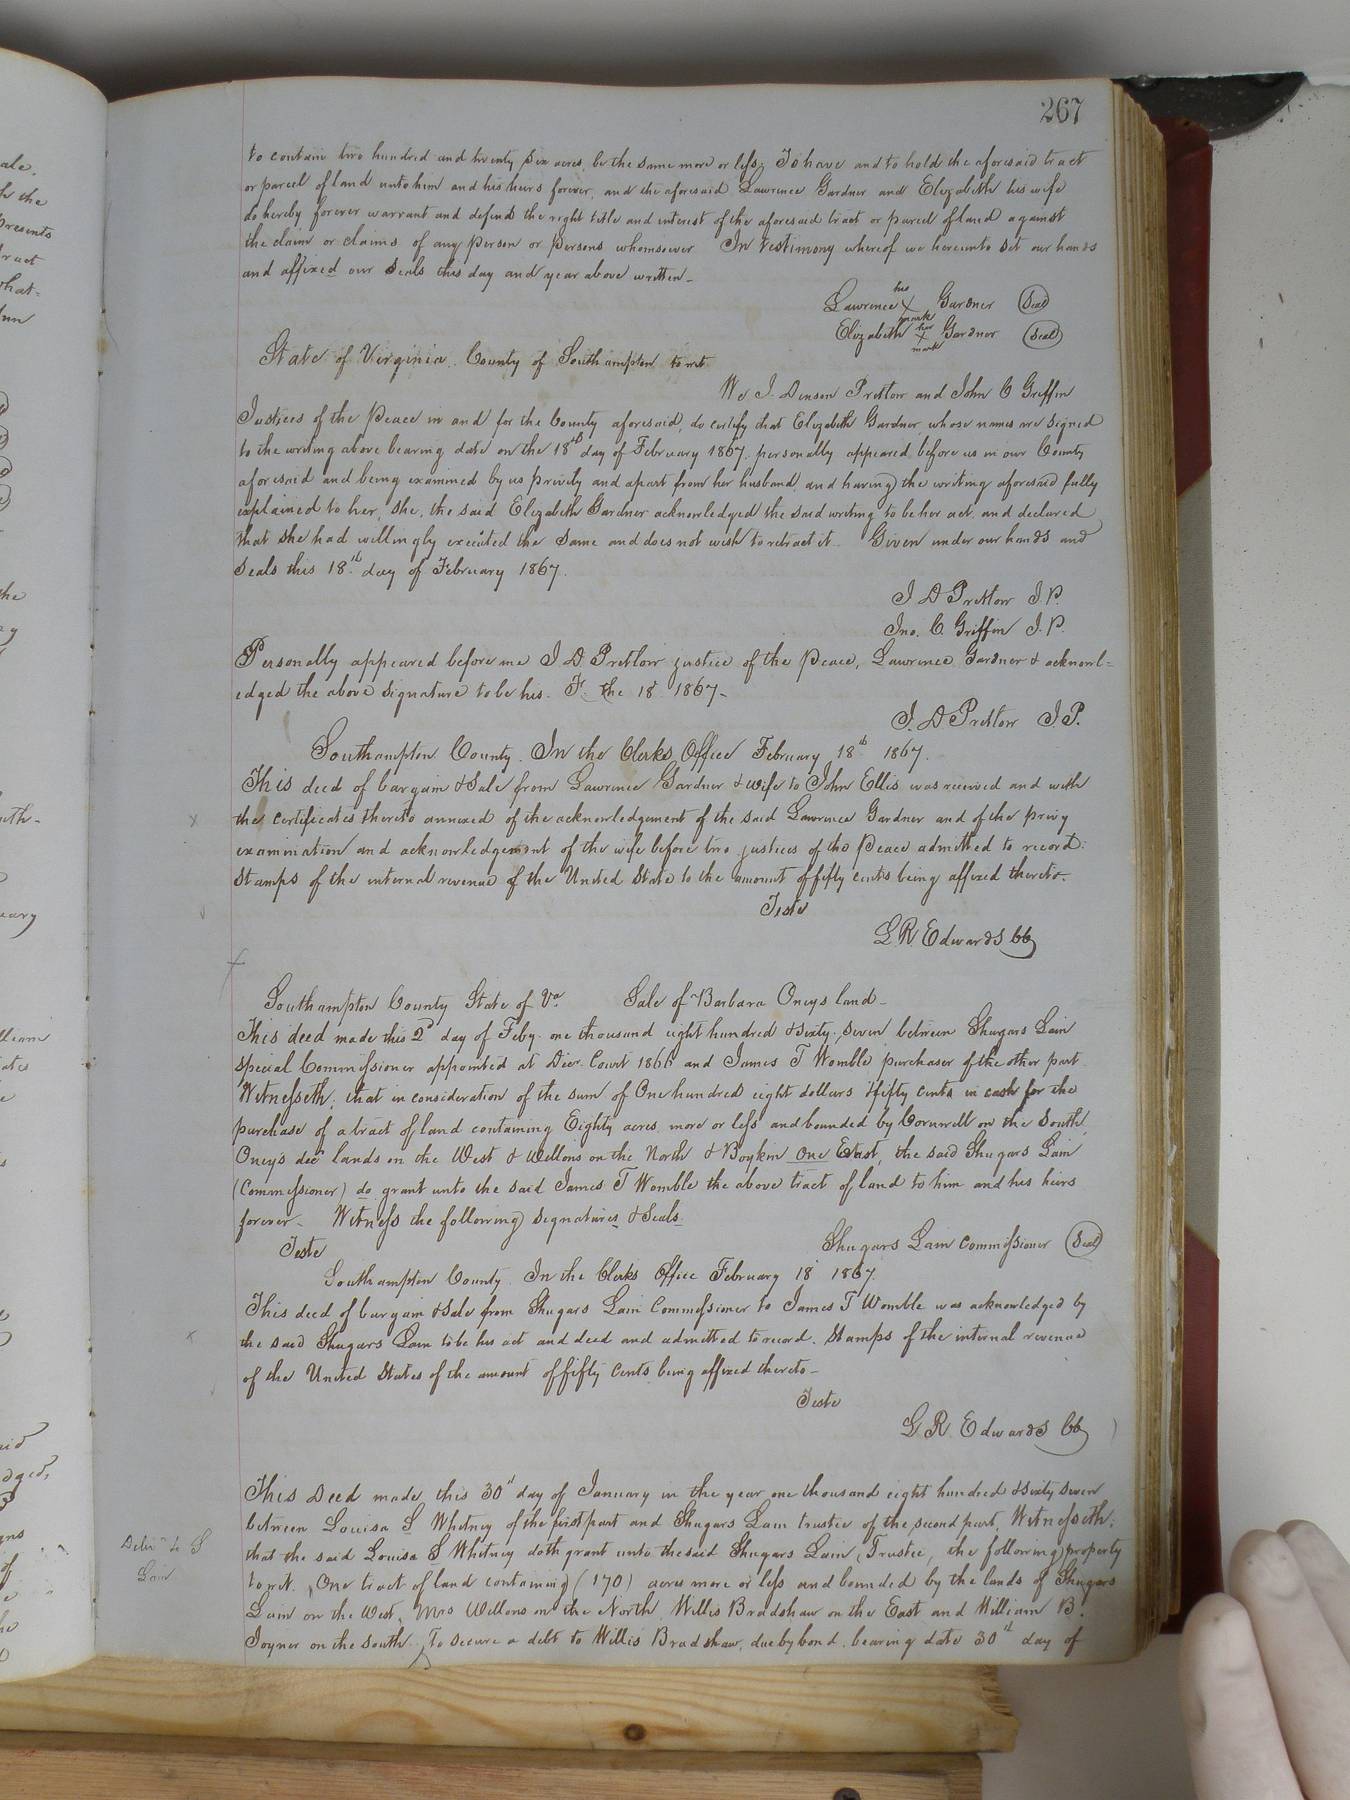 267
to contain two hundred and twenty six acres, be the same more or less; To have and to hold the aforesaid tract
or parcel of land unto him and his heirs forever, and the aforesaid Lawrence Gardner and Elizabeth his wife
do hereby forever warrant and defend the right title and interest of the aforesaid tract or parcel of land against
the claim or claims of any person or persons whomsoever In testimony whereof we hereunto set our hands
and affixed our Seals this day and year above written_
his
Lawrence X Gardner (Seal)
mark
her
Elizabeth X Gardner (Seal)
mark
State of Virginia. County of Southampton to wit
We J. Denson Pretlow and John C Griffin
Justices of the Peace in and for the County aforesaid, do certify that Elizabeth Gardner whose names are signed
to the writing above bearing date on the 18th day of February 1867, personally appeared before us in our County
aforesaid and being examined by us privily and apart from her husband, and having the writing aforesaid fully
explained to her, she, the said Elizabeth Gardner acknowledged the said writing to be her act, and declared
that she had willingly executed the same and does not wish to retract it. Given under our hands and
Seals this 18th day of February 1867.
J D Pretlow J.P.
Jno. C. Griffin J.P.
Personally appeared before me J D Pretlow justice of the Peace, Lawrence Gardner & acknowl=
edged the above signature to be his. F. the 18 1867_
J. D Pretlow J.P.
Southampton County. In the Clerks Office February 18th 1867.
This deed of bargain & Sale from Lawrence Gardner & wife to John Ellis was received and with
the certificates thereto annexed of the acknowledgement of the said Lawrence Gardner and of the privy
examination and acknowledgement of the wife before two justices of the Peace admitted to record.
Stamps of the internal revenue of the United State to the amount of fifty cents being affixed thereto.
Teste
L R Edwards CC
Southampton County State of Va. Sale of Barbara Oneys land_
This deed made this 2d day of Feby. one thousand eight hundred & sixty, seven between Shugars Lain
special Commissioner appointed at Decr. Court 1866 and James T Womble purchaser of the other part
Witnesseth, that in consideration of the sum of One hundred eight dollars & fifty cents in cash for the
purchase of a tract of land containing Eighty acres more or less and bounded by Cornwell on the South,
Oney's decd lands on the West & Wellons on the North & Boykin One East, the said Shugars Lain
(Commissioner) do grant unto the said James T Womble the above tract of land to him and his heirs
forever_ Witness the following signatures & Seals.
Teste Shugars Lain Commissioner (Seal)
Southampton County. In the Clerks Office February 18 1867.
This deed of bargain & Sale from Shugars Lain Commissioner to James T Womble was acknowledged by
the said Shugars Lain to be his act and deed and admitted to record. Stamps of the internal revenue
of the United States of the amount of fifty Cents being affixed thereto_
Teste
L R Edwards CC
This Deed made this 30th day of January in the year one thousand eight hundred & sixty seven
between Louisa S Whitney of the first part and Shugars Lain trustee of the second part, Witnesseth;
Delivd to S
Lain
that the said Louisa S Whitney doth grant unto the said Shugars Lain, (Trustee, the following property
to wit. One tract of land containing (170) acres more or less and bounded by the lands of Shugars
Lain on the West, Mrs Wellons on the North, Willis Bradshaw on the East and William B.
Joyner on the South. To secure a debt to Willis Bradshaw, due by bond, bearing date 30th day of